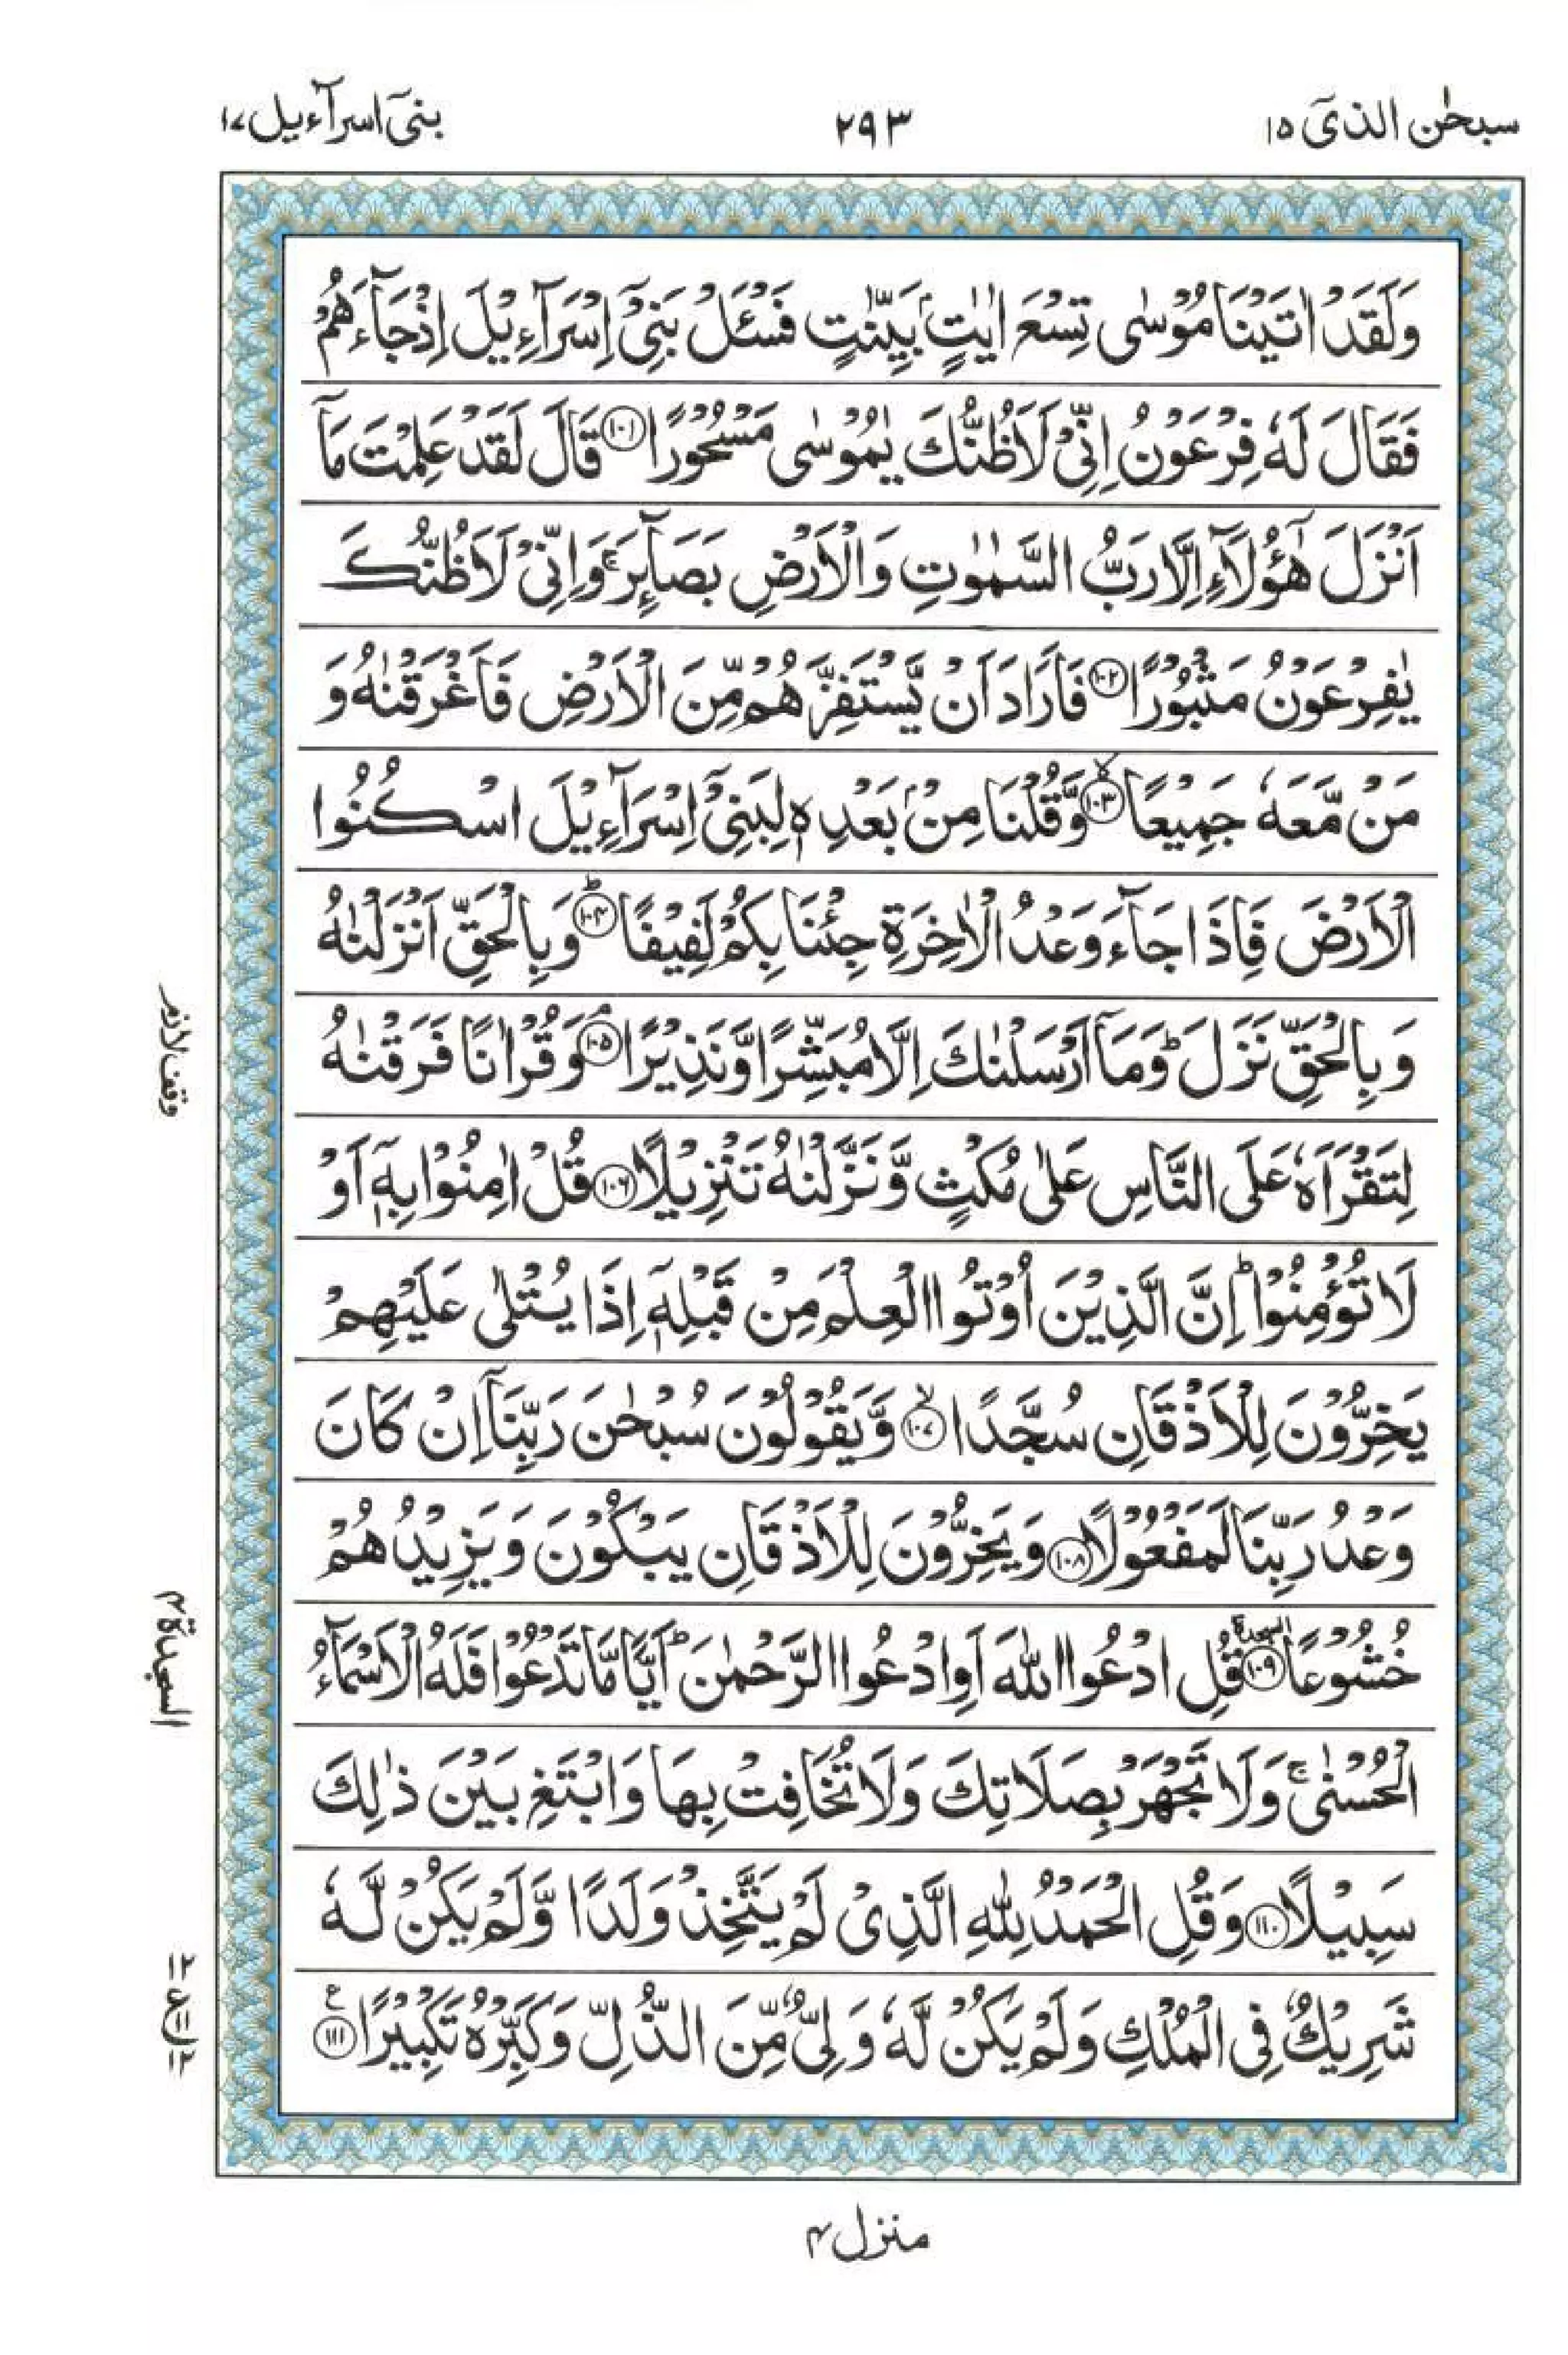 سبحٰن الذیۤ ١٥
٢٩٣
بنیۤ اسرآءیل ١٧
وَلَقَدْ اٰتَيْنَا مُوْسٰى تِسْعَ اٰيٰتٍۭ بَيِّنٰتٍ فَسْـَٔلْ بَنِيْۤ اِسْرَآءِيْلَ اِذْ جَآءَهُمْ
فَقَالَ لَهٗ فِرْعَوْنُ اِنِّيْ لَاَظُنُّكَ يٰمُوْسٰى مَسْحُوْرًا ۝١٠١ قَالَ لَقَدْ عَلِمْتَ مَاۤ
اَنْزَلَ هٰۤؤُلَآءِ اِلَّا رَبُّ السَّمٰوٰتِ وَالْاَرْضِ بَصَآئِرَ ۚ وَاِنِّيْ لَاَظُنُّكَ
يٰفِرْعَوْنُ مَثْبُوْرًا ۝١٠٢ فَاَرَادَ اَنْ يَّسْتَفِزَّهُمْ مِّنَ الْاَرْضِ فَاَغْرَقْنٰهُ وَ
مَنْ مَّعَهٗ جَمِيْعًا ۝١٠٣ۙ وَّقُلْنَا مِنْۢ بَعْدِهٖ لِبَنِيْۤ اِسْرَآءِيْلَ اسْكُنُوا
الْاَرْضَ فَاِذَا جَآءَ وَعْدُ الْاٰخِرَةِ جِئْنَا بِكُمْ لَفِيْفًا ۝١٠٤ؕ وَبِالْحَقِّ اَنْزَلْنٰهُ
وَبِالْحَقِّ نَزَلَ ؕ وَمَاۤ اَرْسَلْنٰكَ اِلَّا مُبَشِّرًا وَّنَذِيْرًا ۝١٠٥ۘ وَقُرْاٰنًا فَرَقْنٰهُ
لِتَقْرَاَهٗ عَلَى النَّاسِ عَلٰى مُكْثٍ وَّنَزَّلْنٰهُ تَنْزِيْلًا ۝١٠٦ قُلْ اٰمِنُوْا بِهٖۤ اَوْ
لَا تُؤْمِنُوْا ؕ اِنَّ الَّذِيْنَ اُوْتُوا الْعِلْمَ مِنْ قَبْلِهٖۤ اِذَا يُتْلٰى عَلَيْهِمْ
يَخِرُّوْنَ لِلْاَذْقَانِ سُجَّدًا ۝١٠٧ۙ وَّيَقُوْلُوْنَ سُبْحٰنَ رَبِّنَاۤ اِنْ كَانَ
وَعْدُ رَبِّنَا لَمَفْعُوْلًا ۝١٠٨ وَيَخِرُّوْنَ لِلْاَذْقَانِ يَبْكُوْنَ وَيَزِيْدُهُمْ
خُشُوْعًا ۝١٠٩ السجدة قُلِ ادْعُوا اللّٰهَ اَوِ ادْعُوا الرَّحْمٰنَ ؕ اَيًّا مَّا تَدْعُوْا فَلَهُ الْاَسْمَآءُ
الْحُسْنٰى ۚ وَلَا تَجْهَرْ بِصَلَاتِكَ وَلَا تُخَافِتْ بِهَا وَابْتَغِ بَيْنَ ذٰلِكَ
سَبِيْلًا ۝١١٠ وَقُلِ الْحَمْدُ لِلّٰهِ الَّذِيْ لَمْ يَتَّخِذْ وَلَدًا وَّلَمْ يَكُنْ لَّهٗ
شَرِيْكٌ فِي الْمُلْكِ وَلَمْ يَكُنْ لَّهٗ وَلِيٌّ مِّنَ الذُّلِّ وَكَبِّرْهُ تَكْبِيْرًا ۝١١١ ع
وقف لازم
السجدة ٤
١٢ ع ١٢
منزل ٤